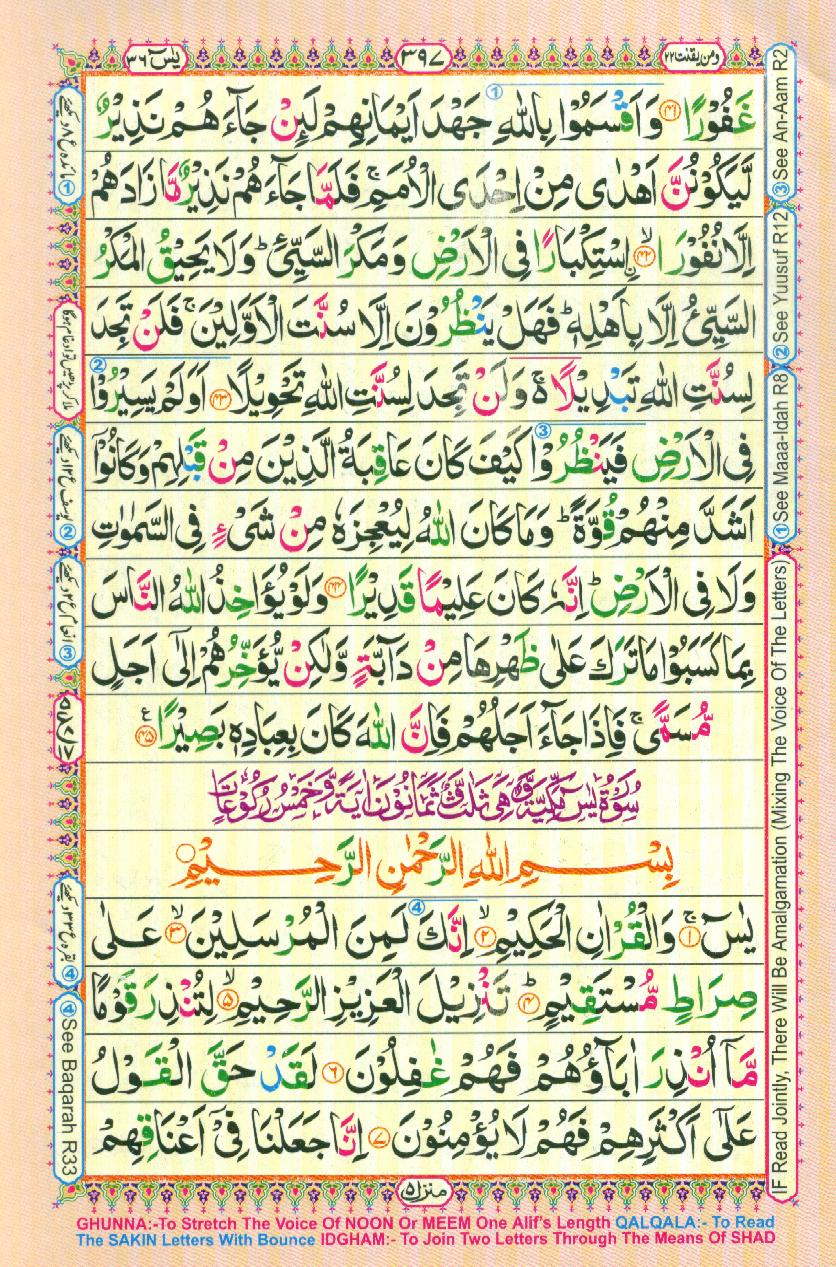 يٰسٓ ٣٦
٣٩٧
ومن يقنت ٢٢
غَفُوْرًا ﴿۴۱﴾ وَاَقْسَمُوْا بِاللّٰهِ جَهْدَ اَيْمَانِهِمْ لَئِنْ جَآءَهُمْ نَذِيْرٌ
لَّيَكُوْنُنَّ اَهْدٰى مِنْ اِحْدَى الْاُمَمِ ۚ فَلَمَّا جَآءَهُمْ نَذِيْرٌ مَّا زَادَهُمْ
اِلَّا نُفُوْرَا ﴿۴۲﴾ اِۨسْتِكْبَارًا فِى الْاَرْضِ وَمَكْرَ السَّيِّئِ ؕ وَلَا يَحِيْقُ الْمَكْرُ
السَّيِّئُ اِلَّا بِاَهْلِهٖ ؕ فَهَلْ يَنْظُرُوْنَ اِلَّا سُنَّتَ الْاَوَّلِيْنَ ۚ فَلَنْ تَجِدَ
لِسُنَّتِ اللّٰهِ تَبْدِيْلًا ۚ وَلَنْ تَجِدَ لِسُنَّتِ اللّٰهِ تَحْوِيْلًا ﴿۴۳﴾ اَوَلَمْ يَسِيْرُوْا
فِى الْاَرْضِ فَيَنْظُرُوْا كَيْفَ كَانَ عَاقِبَةُ الَّذِيْنَ مِنْ قَبْلِهِمْ وَكَانُوْۤا
اَشَدَّ مِنْهُمْ قُوَّةً ؕ وَمَا كَانَ اللّٰهُ لِيُعْجِزَهٗ مِنْ شَىْءٍ فِى السَّمٰوٰتِ
وَلَا فِى الْاَرْضِ ؕ اِنَّهٗ كَانَ عَلِيْمًا قَدِيْرًا ﴿۴۴﴾ وَلَوْ يُؤَاخِذُ اللّٰهُ النَّاسَ
بِمَا كَسَبُوْا مَا تَرَكَ عَلٰى ظَهْرِهَا مِنْ دَآبَّةٍ وَّلٰكِنْ يُّؤَخِّرُهُمْ اِلٰٓى اَجَلٍ
مُّسَمًّى ۚ فَاِذَا جَآءَ اَجَلُهُمْ فَاِنَّ اللّٰهَ كَانَ بِعِبَادِهٖ بَصِيْرًا ﴿۴۵﴾ ع
سُوْرَةُ يٰسٓ مَكِّيَّةٌ وَّهِىَ ثَلٰثٌ وَّثَمَانُوْنَ اٰيَةً وَّخَمْسُ رُكُوْعَاتٍ
بِسْمِ اللّٰهِ الرَّحْمٰنِ الرَّحِيْمِ
يٰسٓ ۚ ﴿۱﴾ وَالْقُرْاٰنِ الْحَكِيْمِ ۙ ﴿۲﴾ اِنَّكَ لَمِنَ الْمُرْسَلِيْنَ ۙ ﴿۳﴾ عَلٰى
صِرَاطٍ مُّسْتَقِيْمٍ ؕ ﴿۴﴾ تَنْزِيْلَ الْعَزِيْزِ الرَّحِيْمِ ۙ ﴿۵﴾ لِتُنْذِرَ قَوْمًا
مَّاۤ اُنْذِرَ اٰبَآؤُهُمْ فَهُمْ غٰفِلُوْنَ ﴿۶﴾ لَقَدْ حَقَّ الْقَوْلُ
عَلٰٓى اَكْثَرِهِمْ فَهُمْ لَا يُؤْمِنُوْنَ ﴿۷﴾ اِنَّا جَعَلْنَا فِىْۤ اَعْنَاقِهِمْ
منزل ۵
③See An-Aam R2
②See Yuusuf R12
①See Maaa-Idah R8
IF Read Jointly, There Will Be Amalgamation (Mixing The Voice Of The Letters)
④See Baqarah R33
GHUNNA:-To Stretch The Voice Of NOON Or MEEM One Alif's Length QALQALA:- To Read
The SAKIN Letters With Bounce IDGHAM:- To Join Two Letters Through The Means Of SHAD